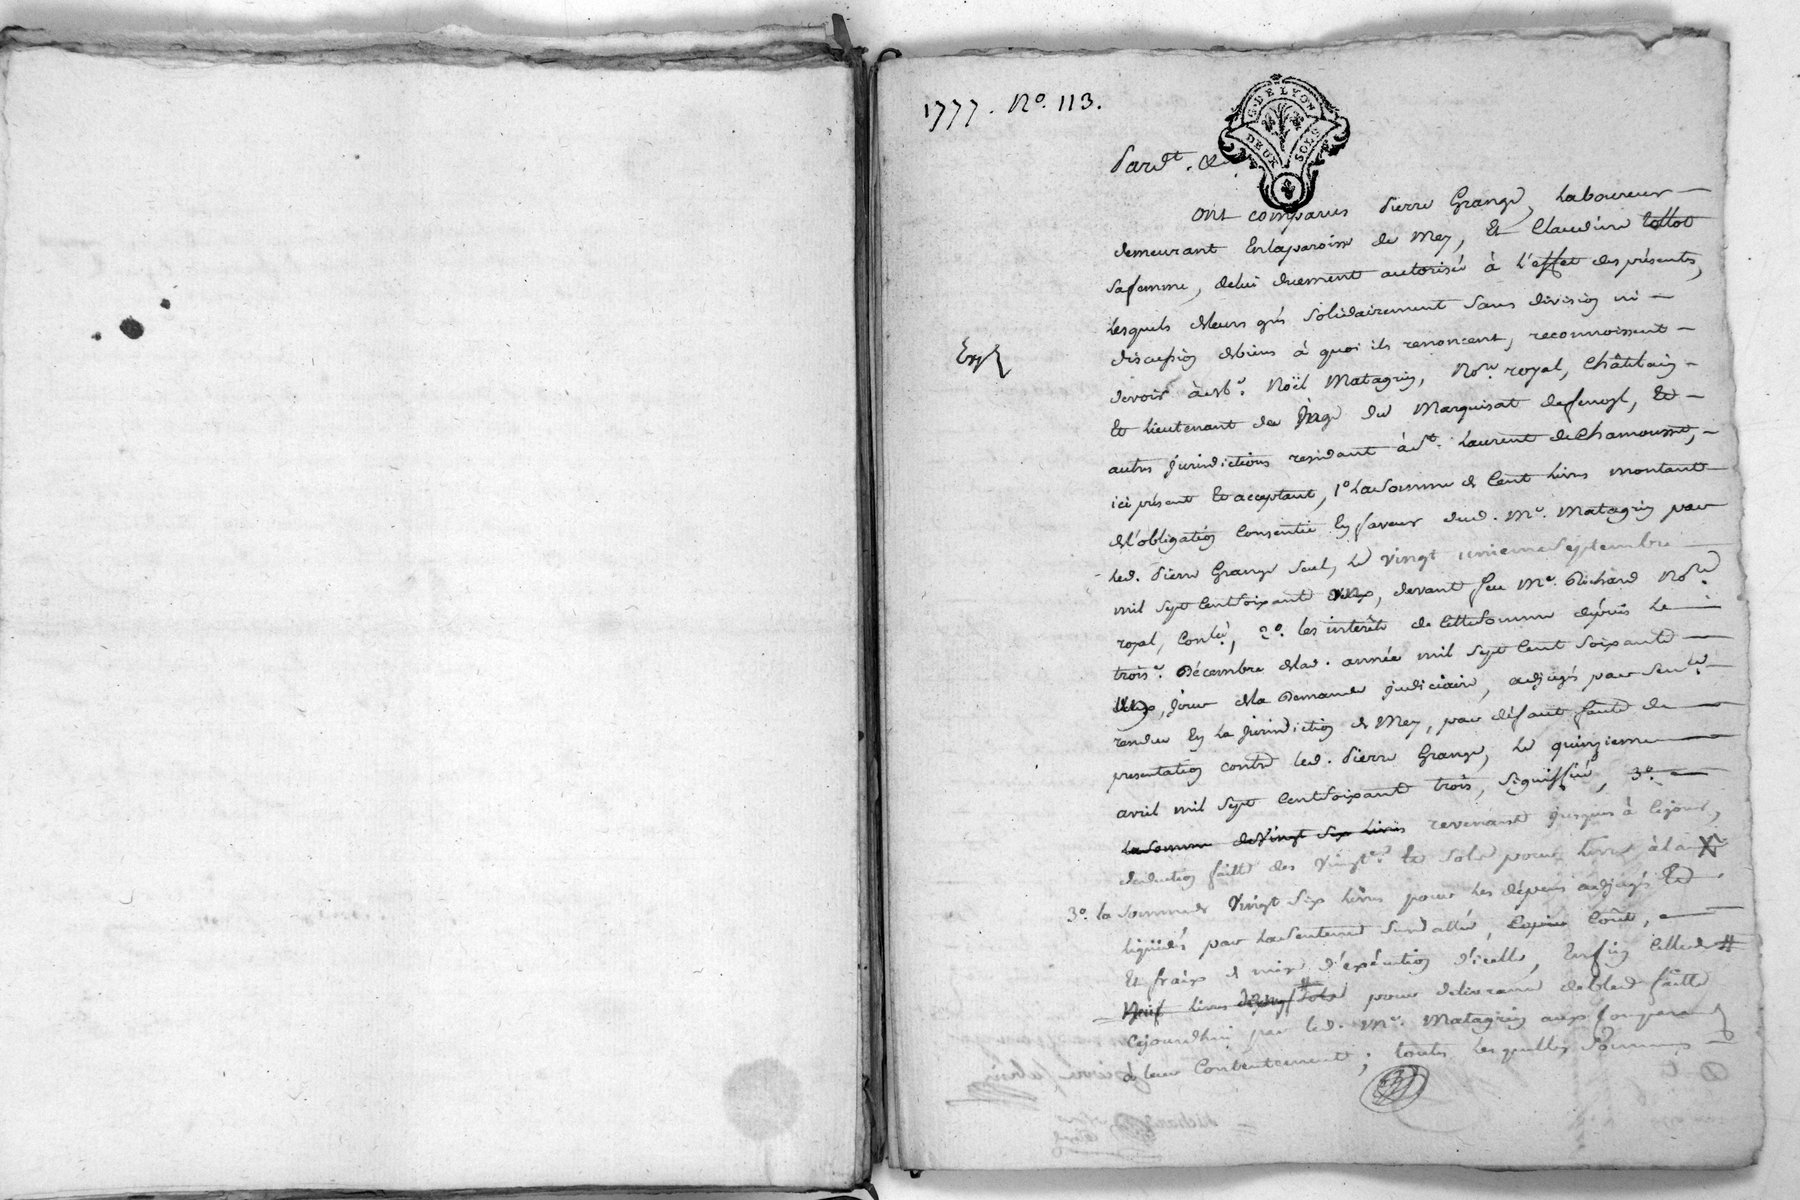 1777. No. 113.
G. DE LYON
DEUX SOLS
Pardt. &
Ont comparus Pierre Grange, Laboureur
demeurant En la paroisse de Mey, Et Claudine tollot
sa femme, de lui duement autorisée à l'effet des présentes,
Lesquels de leurs grés solidairement sans division ni
discussion de biens à quoi ils renoncent, reconnoissent
devoir à Noël Matagrin, Nore. royal, Châtelain
Et Lieutenant de Juge du Marquisat de fenoyl, Et
autres jurisdictions residant à St. Laurent de Chamousset,
ici présent Et acceptant, 1o. La somme de Cent Livres montant
de l'obligation Consentie En faveur dud. Me. Matagrin par
Led. Pierre Grange seul, Le vingt unieme Septembre
mil sept Cent soixante deux, devant feu Me. Richard Nore.
royal, 2o. les interêts de Cette somme depuis Le
trois.e Décembre de lad. année mil sept Cent soixante
deux, jour de la Demande judiciaire, adjugés par Sentce.
rendue En La Jurisdiction de Mey, par défaut faute de
presentation contre led. Pierre Grange, Le quinzieme
avril mil sept Cent soixante trois, signiffiée, 3o.
La somme de Vingt Six Livres revenant jusques à Ce jour,
deduction faitte des Vingt.es Et Sols pour Livre à la X
3o. la somme de Vingt Six Livres pour Les dépens adjugés Et
liquidés par La Sentence Susdattée, Copie Coût,
Et fraix de mise d'exécution d'icelle, Enfin Celle de #
Neuf Livres Sols pour délivrance de bled faitte
Cejourdhui par Led. Me. Matagrin aux Comparans
à leur Contentement ; toutes Lesquelles Sommes